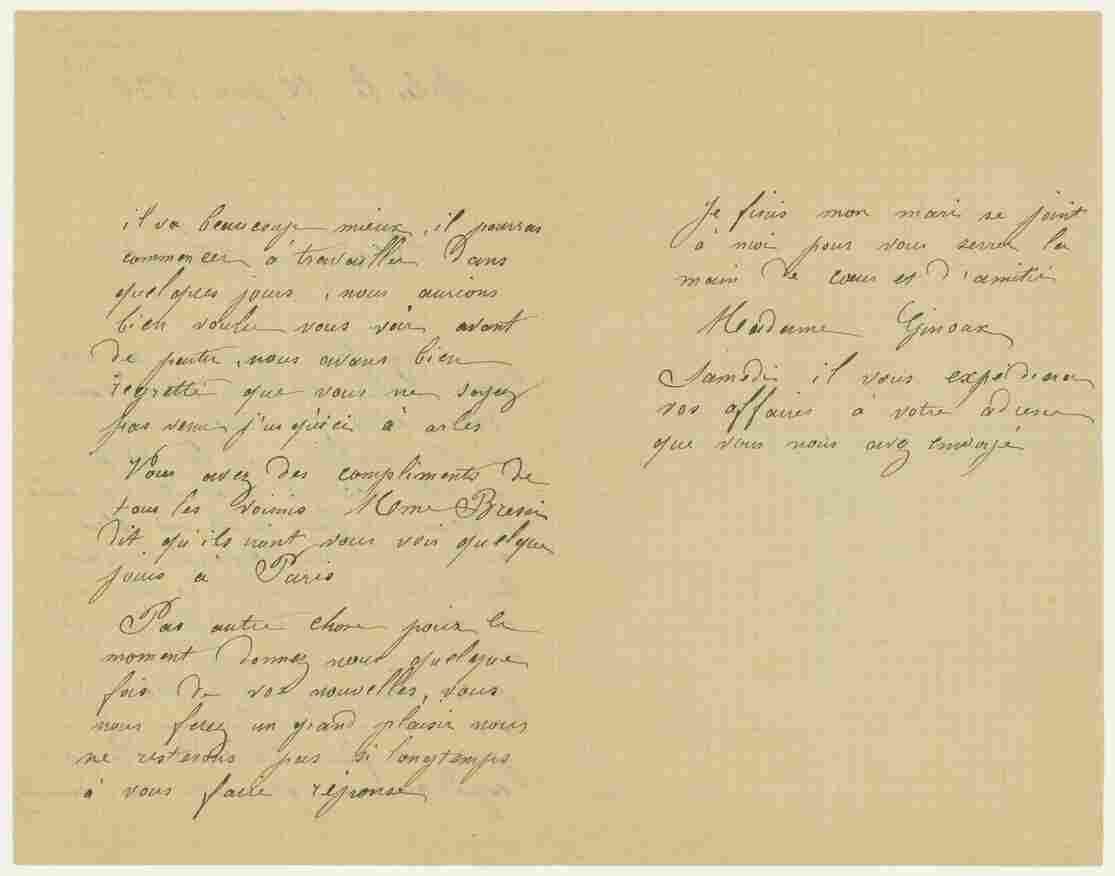 il va beaucoup mieux, il pourras
commencer à travailler Dans
quelques jours, nous aurions
bien voulu vous voir avant
de partir, nous avons bien
regretté que vous ne soyez
pas venu j'usqu'ici à arles
Vous avez des compliments de
tous les voisins Mme Bresin
dit qu'ils iront vous voir quelque
jours à Paris
Pas autre chose pour le
moment donnez nous quelque
fois de vos nouvelles, vous
nous ferez un grand plaisir nous
ne resterons pas si longtemps
à vous faire réponse
Je finis mon mari se joint
à moi pour vous serrer la
main de cœur et d'amitié
Madame Ginoux
Samedi il vous expédiera
vos affaires à votre adresse
que vous nous avez envoyé